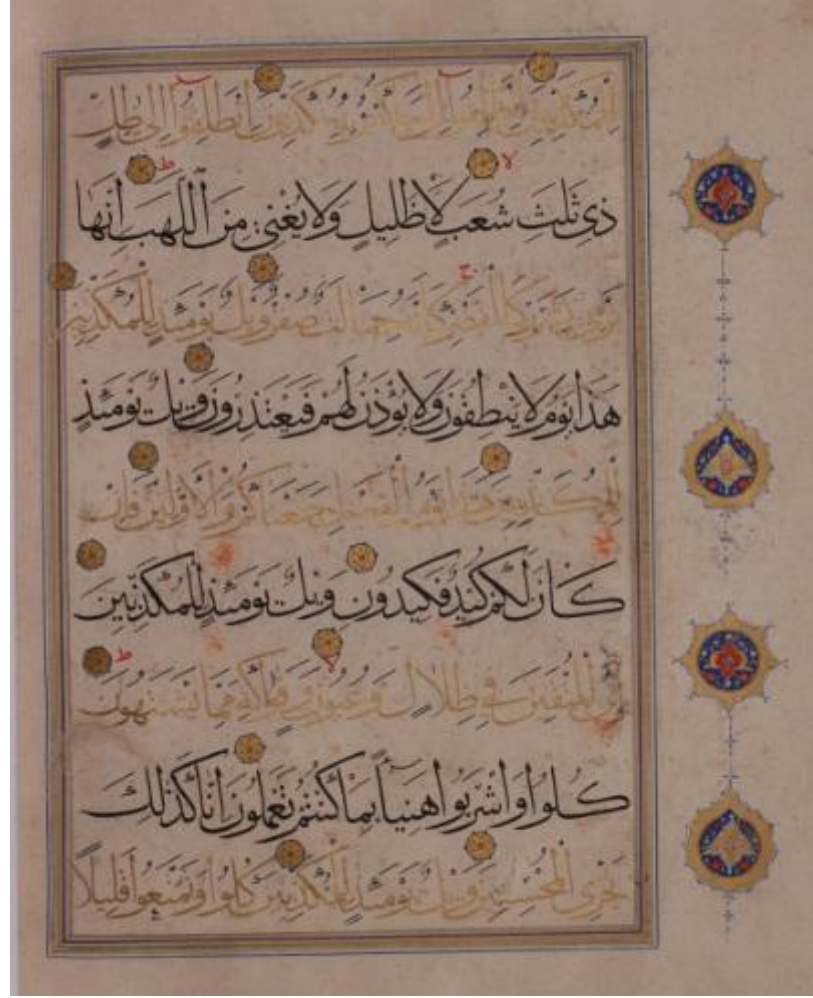 لِلْمُكَذِّبِينَ انْطَلِقُوا إِلَى مَا كُنْتُمْ بِهِ تُكَذِّبُونَ انْطَلِقُوا إِلَى ظِلٍّ
ذِي ثَلٰثِ شُعَبٍ لَا ظَلِيلٍ وَلَا يُغْنِي مِنَ اللَّهَبِ إِنَّهَا
تَرْمِي بِشَرَرٍ كَالْقَصْرِ كَأَنَّهُ جِمَالَتٌ صُفْرٌ وَيْلٌ يَوْمَئِذٍ لِلْمُكَذِّبِينَ
هَذَا يَوْمُ لَا يَنْطِقُونَ وَلَا يُؤْذَنُ لَهُمْ فَيَعْتَذِرُونَ وَيْلٌ يَوْمَئِذٍ
لِلْمُكَذِّبِينَ هَذَا يَوْمُ الْفَصْلِ جَمَعْنَاكُمْ وَالْأَوَّلِينَ فَإِنْ
كَانَ لَكُمْ كَيْدٌ فَكِيدُونِ وَيْلٌ يَوْمَئِذٍ لِلْمُكَذِّبِينَ
إِنَّ الْمُتَّقِينَ فِي ظِلَالٍ وَعُيُونٍ وَفَوَاكِهَ مِمَّا يَشْتَهُونَ
كُلُوا وَاشْرَبُوا هَنِيئًا بِمَا كُنْتُمْ تَعْمَلُونَ إِنَّا كَذَلِكَ
نَجْزِي الْمُحْسِنِينَ وَيْلٌ يَوْمَئِذٍ لِلْمُكَذِّبِينَ كُلُوا وَتَمَتَّعُوا قَلِيلًا